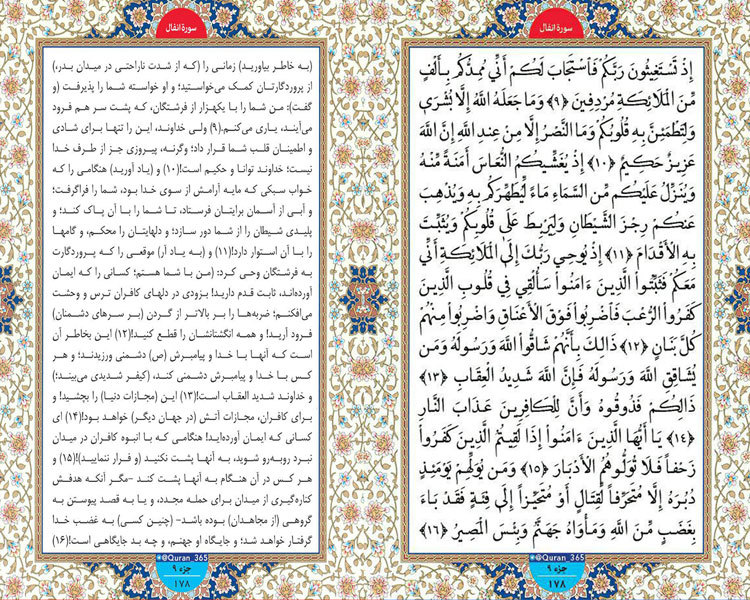 سورهٔ انفال
إِذْ تَسْتَغِيثُونَ رَبَّكُمْ فَاسْتَجَابَ لَكُمْ أَنِّي مُمِدُّكُم بِأَلْفٍ
مِّنَ الْمَلَائِكَةِ مُرْدِفِينَ ﴿۹﴾ وَمَا جَعَلَهُ اللَّهُ إِلَّا بُشْرَىٰ
وَلِتَطْمَئِنَّ بِهِ قُلُوبُكُمْ وَمَا النَّصْرُ إِلَّا مِنْ عِندِ اللَّهِ إِنَّ اللَّهَ
عَزِيزٌ حَكِيمٌ ﴿۱۰﴾ إِذْ يُغَشِّيكُمُ النُّعَاسَ أَمَنَةً مِّنْهُ
وَيُنَزِّلُ عَلَيْكُم مِّنَ السَّمَاءِ مَاءً لِّيُطَهِّرَكُم بِهِ وَيُذْهِبَ
عَنكُمْ رِجْزَ الشَّيْطَانِ وَلِيَرْبِطَ عَلَىٰ قُلُوبِكُمْ وَيُثَبِّتَ
بِهِ الْأَقْدَامَ ﴿۱۱﴾ إِذْ يُوحِي رَبُّكَ إِلَى الْمَلَائِكَةِ أَنِّي
مَعَكُمْ فَثَبِّتُوا الَّذِينَ ءَامَنُوا سَأُلْقِي فِي قُلُوبِ الَّذِينَ
كَفَرُوا الرُّعْبَ فَاضْرِبُوا فَوْقَ الْأَعْنَاقِ وَاضْرِبُوا مِنْهُمْ
كُلَّ بَنَانٍ ﴿۱۲﴾ ذَٰلِكَ بِأَنَّهُمْ شَاقُّوا اللَّهَ وَرَسُولَهُ وَمَن
يُشَاقِقِ اللَّهَ وَرَسُولَهُ فَإِنَّ اللَّهَ شَدِيدُ الْعِقَابِ ﴿۱۳﴾
ذَٰلِكُمْ فَذُوقُوهُ وَأَنَّ لِلْكَافِرِينَ عَذَابَ النَّارِ
﴿۱۴﴾ يَا أَيُّهَا الَّذِينَ ءَامَنُوا إِذَا لَقِيتُمُ الَّذِينَ كَفَرُوا
زَحْفًا فَلَا تُوَلُّوهُمُ الْأَدْبَارَ ﴿۱۵﴾ وَمَن يُوَلِّهِمْ يَوْمَئِذٍ
دُبُرَهُ إِلَّا مُتَحَرِّفًا لِّقِتَالٍ أَوْ مُتَحَيِّزًا إِلَىٰ فِئَةٍ فَقَدْ بَاءَ
بِغَضَبٍ مِّنَ اللَّهِ وَمَأْوَاهُ جَهَنَّمُ وَبِئْسَ الْمَصِيرُ ﴿۱۶﴾
@Quran_365
جزء ۹
۱۷۸
سورهٔ انفال
(به خاطر بیاورید) زمانی را (که از شدت ناراحتی در میدان بدر،)
از پروردگارتان کمک می‌خواستید؛ و او خواسته شما را پذیرفت (و
گفت): من شما را با یکهزار از فرشتگان، که پشت سر هم فرود
می‌آیند، یاری می‌کنم.(۹) ولی خداوند، این را تنها برای شادی
و اطمینان قلب شما قرار داد؛ وگرنه، پیروزی جز از طرف خدا
نیست؛ خداوند توانا و حکیم است!(۱۰) و (یاد آورید) هنگامی را که
خواب سبکی که مایه آرامش از سوی خدا بود، شما را فراگرفت؛
و آبی از آسمان برایتان فرستاد، تا شما را با آن پاک کند؛ و
پلیدی شیطان را از شما دور سازد؛ و دلهایتان را محکم، و گامها
را با آن استوار دارد!(۱۱) و (به یاد آر) موقعی را که پروردگارت
به فرشتگان وحی کرد: (من با شما هستم؛ کسانی را که ایمان
آورده‌اند، ثابت قدم دارید! بزودی در دلهای کافران ترس و وحشت
می‌افکنم؛ ضربه‌ها را بر بالاتر از گردن (بر سرهای دشمنان)
فرود آرید! و همه انگشتانشان را قطع کنید!(۱۲) این بخاطر آن
است که آنها با خدا و پیامبرش (ص) دشمنی ورزیدند؛ و هر
کس با خدا و پیامبرش دشمنی کند، (کیفر شدیدی می‌بیند؛)
و خداوند شدید العقاب است!(۱۳) این (مجازات دنیا) را بچشید! و
برای کافران، مجازات آتش (در جهان دیگر) خواهد بود!(۱۴) ای
کسانی که ایمان آورده‌اید! هنگامی که با انبوه کافران در میدان
نبرد روبه‌رو شوید، به آنها پشت نکنید (و فرار ننمایید)!(۱۵) و
هر کس در آن هنگام به آنها پشت کند -مگر آنکه هدفش
کناره‌گیری از میدان برای حمله مجدد، و یا به قصد پیوستن به
گروهی (از مجاهدان) بوده باشد- (چنین کسی) به غضب خدا
گرفتار خواهد شد؛ و جایگاه او جهنم، و چه بد جایگاهی است!(۱۶)
@Quran_365
جزء ۹
۱۷۸